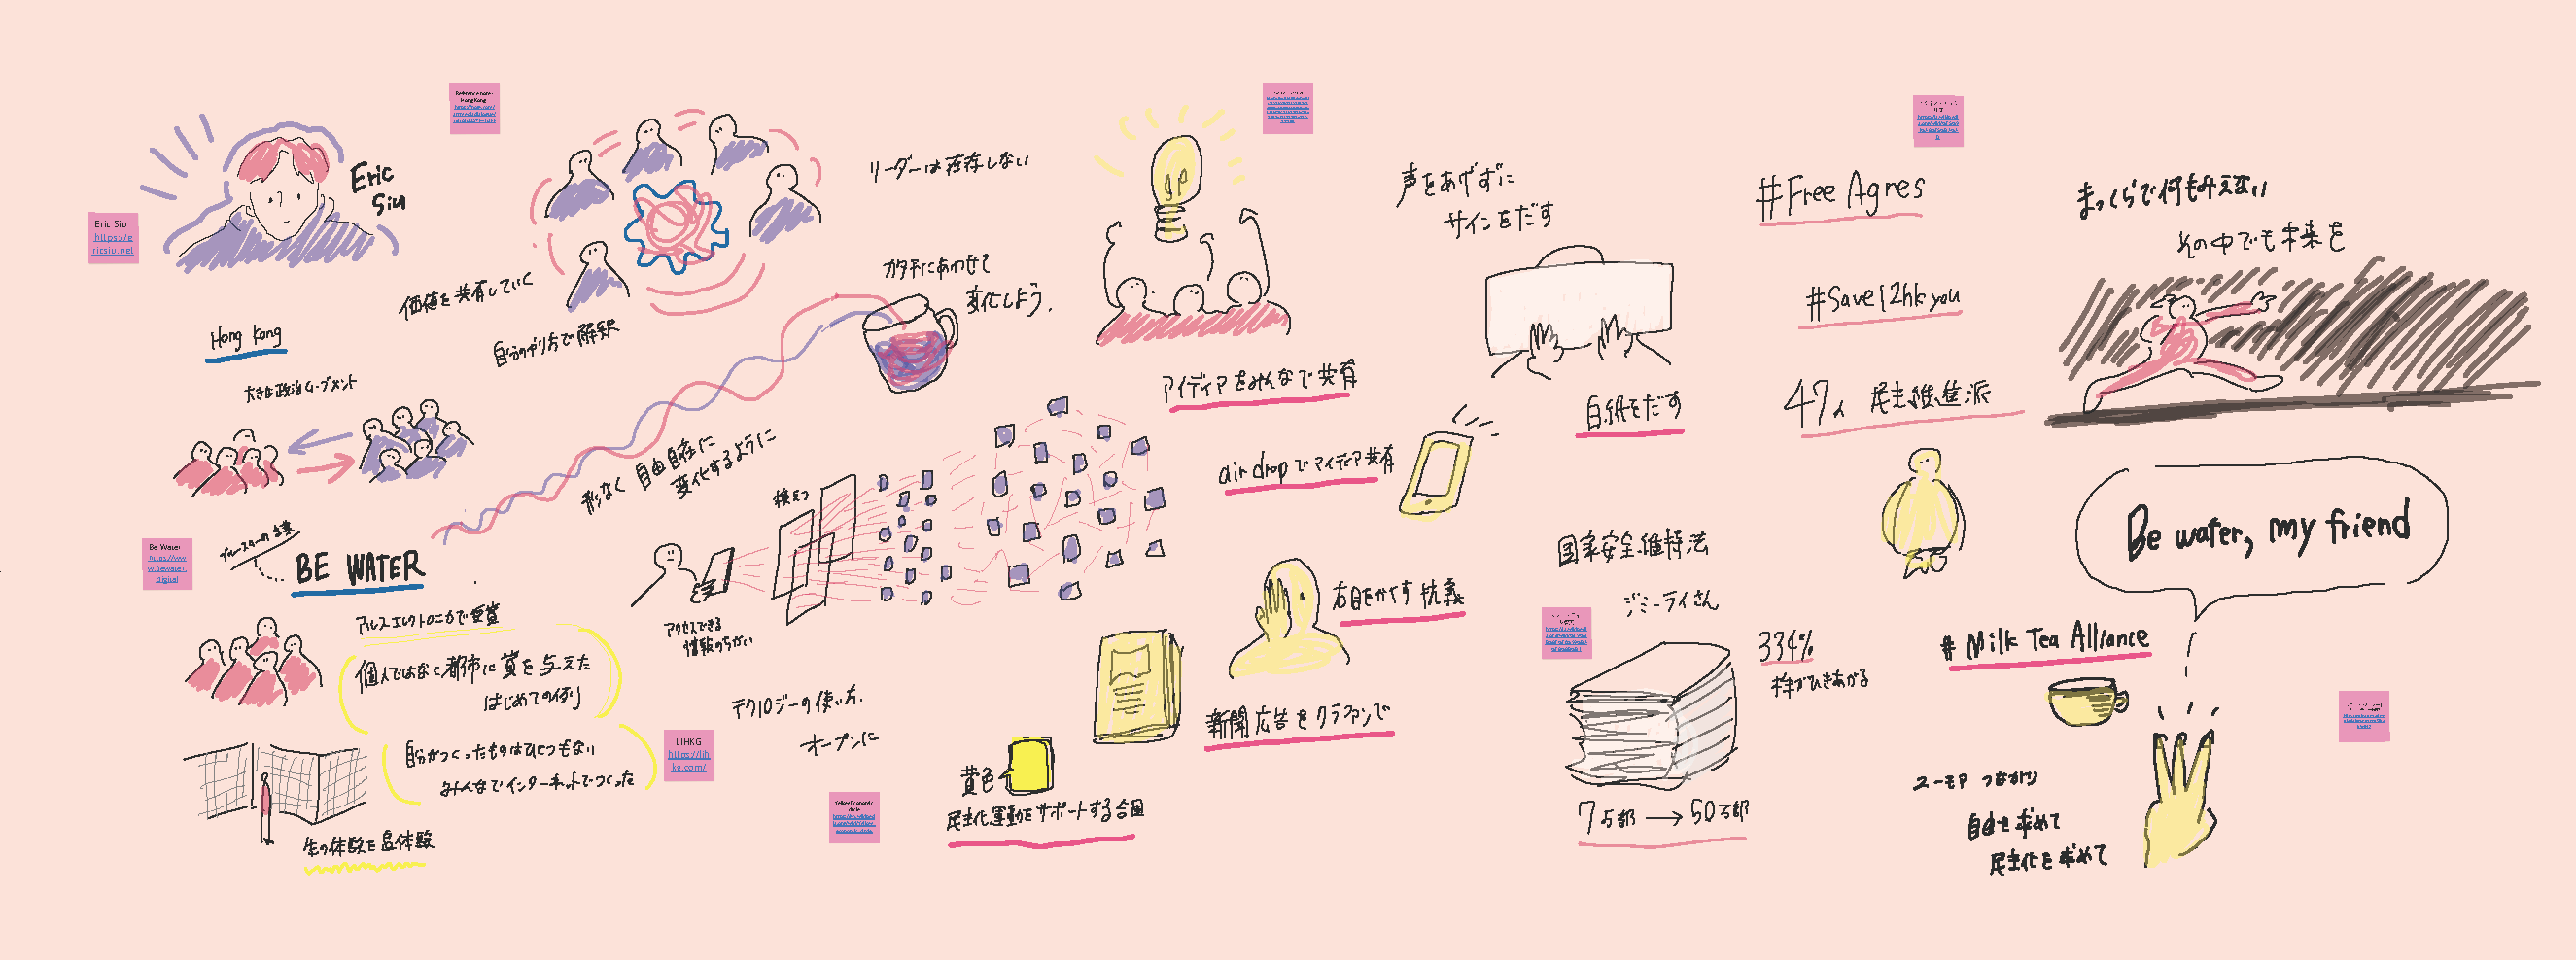 Eric
Siu
Eric Siu
https://e
ricsiu.net
Hong Kong
大きな政治ムーブメント
価値を共有していく
自分のやり方で解釈
リーダーは存在しない
カタチにあわせて
変化しよう.
形なく 自由自在に
変化するように
ブルース・リーの言葉
BE WATER
Be Water
https://ww
w.bewater.
digital
アルスエレクトロニカで受賞
個人ではなく都市に賞を与えた
はじめての例
自分がつくったものはひとつもない
みんなでインターネットでつくった
生の体験を
LIHKG
https://lih
kg.com/
アクセスできる
情報のちがい
テクノロジーの使い方.
オープンに
黄色
民主化運動をサポートする
アイディアをみんなで共有
air dropでアイディア共有
右目をかくす抗議
新聞広告をクラファンで
声をあげずに
サインをだす
白紙をだす
国家安全維持法
ジミーライさん
7万部 → 50万部
334%
株がひきあがる
#Free Agnes
#Save12hkyou
47人 民主推進派
まっくらで何もみえない
その中でも未来を
Be water, my friend
# Milk Tea Alliance
ユーモア つながり
自由を求めて
民主化を求めて